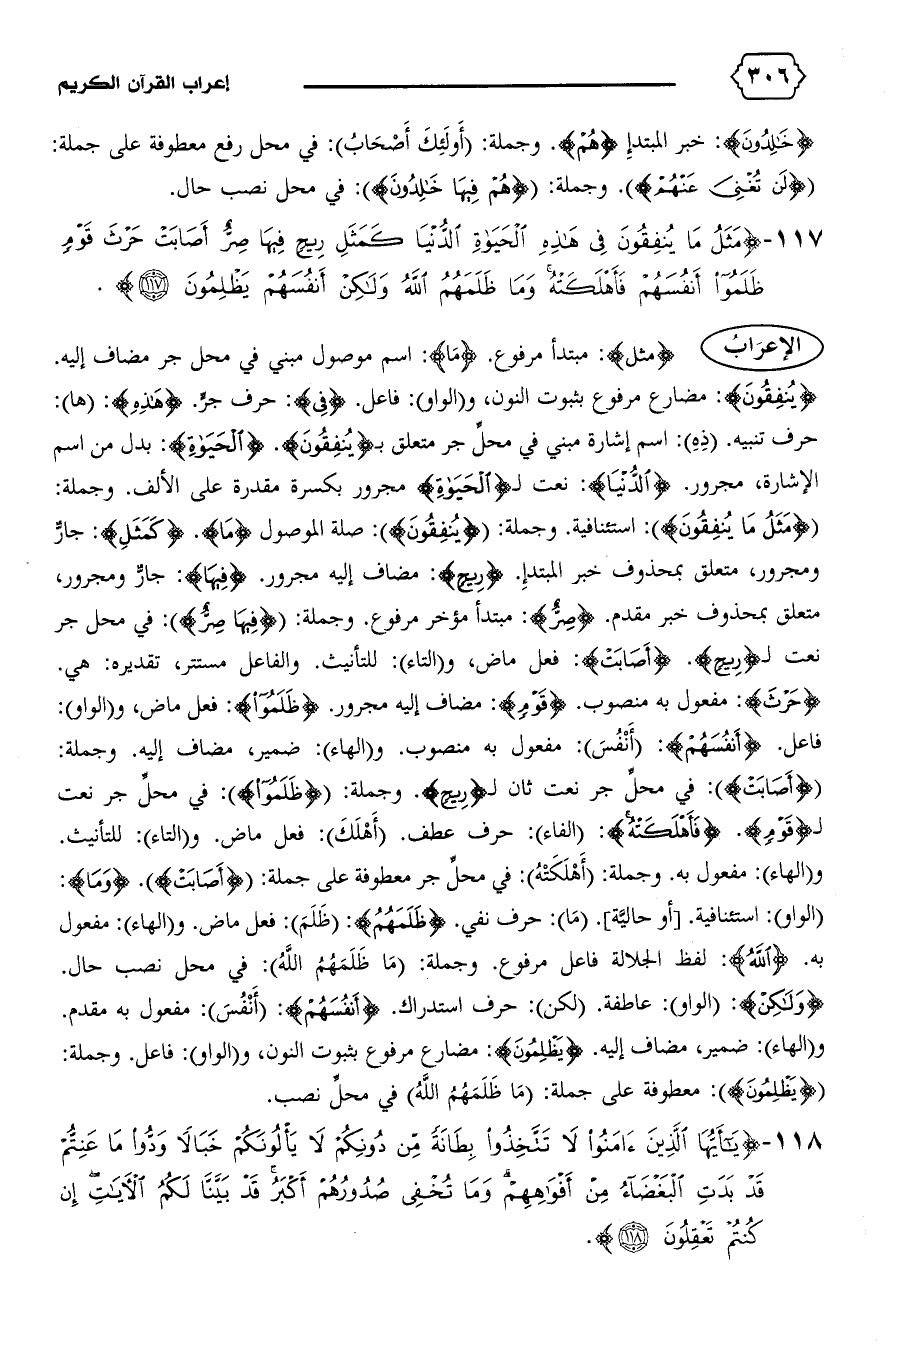 ٣٠٦ إعراب القرآن الكريم
﴿خَٰلِدُونَ﴾: خبر المبتدإ ﴿هُمْ﴾. وجملة: (أُولَئِكَ أَصْحَابُ): في محل رفع معطوفة على جملة:
(﴿لَن تُغْنِىَ عَنْهُمْ﴾). وجملة: (﴿هُمْ فِيهَا خَٰلِدُونَ﴾): في محل نصب حال.
١١٧-﴿مَثَلُ مَا يُنفِقُونَ فِى هَٰذِهِ ٱلْحَيَوٰةِ ٱلدُّنْيَا كَمَثَلِ رِيحٍ فِيهَا صِرٌّ أَصَابَتْ حَرْثَ قَوْمٍ
ظَلَمُوٓا۟ أَنفُسَهُمْ فَأَهْلَكَتْهُ ۚ وَمَا ظَلَمَهُمُ ٱللَّهُ وَلَٰكِنْ أَنفُسَهُمْ يَظْلِمُونَ ١١٧﴾.
الإعرَابُ ﴿مثل﴾: مبتدأ مرفوع. ﴿مَا﴾: اسم موصول مبني في محل جر مضاف إليه.
﴿يُنفِقُونَ﴾: مضارع مرفوع بثبوت النون، و(الواو): فاعل. ﴿فِى﴾: حرف جرٍّ. ﴿هَٰذِهِ﴾: (ها):
حرف تنبيه. (ذِهِ): اسم إشارة مبني في محلِّ جر متعلق بـ﴿يُنفِقُونَ﴾. ﴿ٱلْحَيَوٰةِ﴾: بدل من اسم
الإشارة، مجرور. ﴿ٱلدُّنْيَا﴾: نعت لـ﴿ٱلْحَيَوٰةِ﴾ مجرور بكسرة مقدرة على الألف. وجملة:
(﴿مَثَلُ مَا يُنفِقُونَ﴾): استئنافية. وجملة: (﴿يُنفِقُونَ﴾): صلة الموصول ﴿مَا﴾. ﴿كَمَثَلِ﴾: جارٌّ
ومجرور، متعلق بمحذوف خبر المبتدإ. ﴿رِيحٍ﴾: مضاف إليه مجرور. ﴿فِيهَا﴾: جارٌّ ومجرور،
متعلق بمحذوف خبر مقدم. ﴿صِرٌّ﴾: مبتدأ مؤخر مرفوع. وجملة: (﴿فِيهَا صِرٌّ﴾): في محل جر
نعت لـ﴿رِيحٍ﴾. ﴿أَصَابَتْ﴾: فعل ماض، و(التاء): للتأنيث. والفاعل مستتر، تقديره: هي.
﴿حَرْثَ﴾: مفعول به منصوب. ﴿قَوْمٍ﴾: مضاف إليه مجرور. ﴿ظَلَمُوٓا۟﴾: فعل ماض، و(الواو):
فاعل. ﴿أَنفُسَهُمْ﴾: (أَنْفُسَ): مفعول به منصوب. و(الهاء): ضمير، مضاف إليه. وجملة:
(﴿أَصَابَتْ﴾): في محلِّ جر نعت ثان لـ﴿رِيحٍ﴾. وجملة: (﴿ظَلَمُوٓا۟﴾): في محلِّ جر نعت
لـ﴿قَوْمٍ﴾. ﴿فَأَهْلَكَتْهُ ۚ﴾: (الفاء): حرف عطف. (أَهْلَكَ): فعل ماض. و(التاء): للتأنيث.
و(الهاء): مفعول به. وجملة: (أَهْلَكَتْهُ): في محلِّ جر معطوفة على جملة: (﴿أَصَابَتْ﴾). ﴿وَمَا﴾:
(الواو): استئنافية. [أو حاليَّة]. (مَا): حرف نفي. ﴿ظَلَمَهُمُ﴾: (ظَلَمَ): فعل ماض. و(الهاء): مفعول
به. ﴿ٱللَّهُ﴾: لفظ الجلالة فاعل مرفوع. وجملة: (مَا ظَلَمَهُمُ اللَّهُ): في محل نصب حال.
﴿وَلَٰكِنْ﴾: (الواو): عاطفة. (لكن): حرف استدراك. ﴿أَنفُسَهُمْ﴾: (أَنْفُسَ): مفعول به مقدم.
و(الهاء): ضمير، مضاف إليه. ﴿يَظْلِمُونَ﴾: مضارع مرفوع بثبوت النون، و(الواو): فاعل. وجملة:
(﴿يَظْلِمُونَ﴾): معطوفة على جملة: (مَا ظَلَمَهُمُ اللَّهُ) في محلِّ نصب.
١١٨-﴿يَٰٓأَيُّهَا ٱلَّذِينَ ءَامَنُوا۟ لَا تَتَّخِذُوا۟ بِطَانَةً مِّن دُونِكُمْ لَا يَأْلُونَكُمْ خَبَالًا وَدُّوا۟ مَا عَنِتُّمْ
قَدْ بَدَتِ ٱلْبَغْضَآءُ مِنْ أَفْوَٰهِهِمْ وَمَا تُخْفِى صُدُورُهُمْ أَكْبَرُ ۚ قَدْ بَيَّنَّا لَكُمُ ٱلْءَايَٰتِ ۖ إِن
كُنتُمْ تَعْقِلُونَ ١١٨﴾.